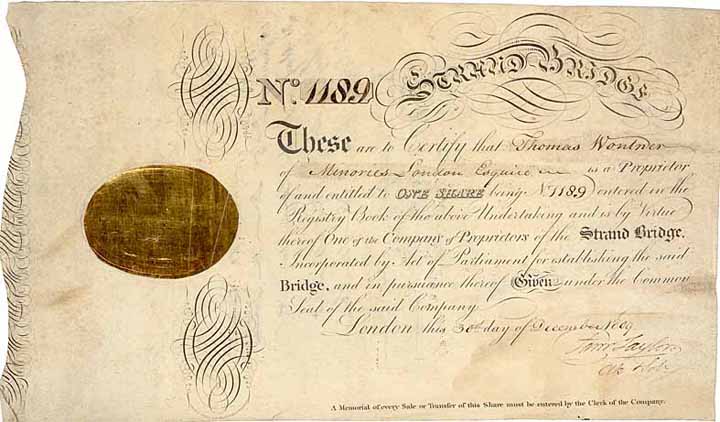 No. 1189 STRAND BRIDGE
These are to Certify that Thomas Wontner
of Minories London Esquire is a Proprietor
of and entitled to ONE SHARE being No. 1189 entered in the
Registry Book of the above Undertaking and is by Virtue
thereof One of the Company of Proprietors of the Strand Bridge.
Incorporated by Act of Parliament for establishing the said
Bridge, and in pursuance thereof Given under the Common
Seal of the said Company
London this 30th day of December 1809
A Memorial of every Sale or Transfer of this Share must be entered by the Clerk of the Company.